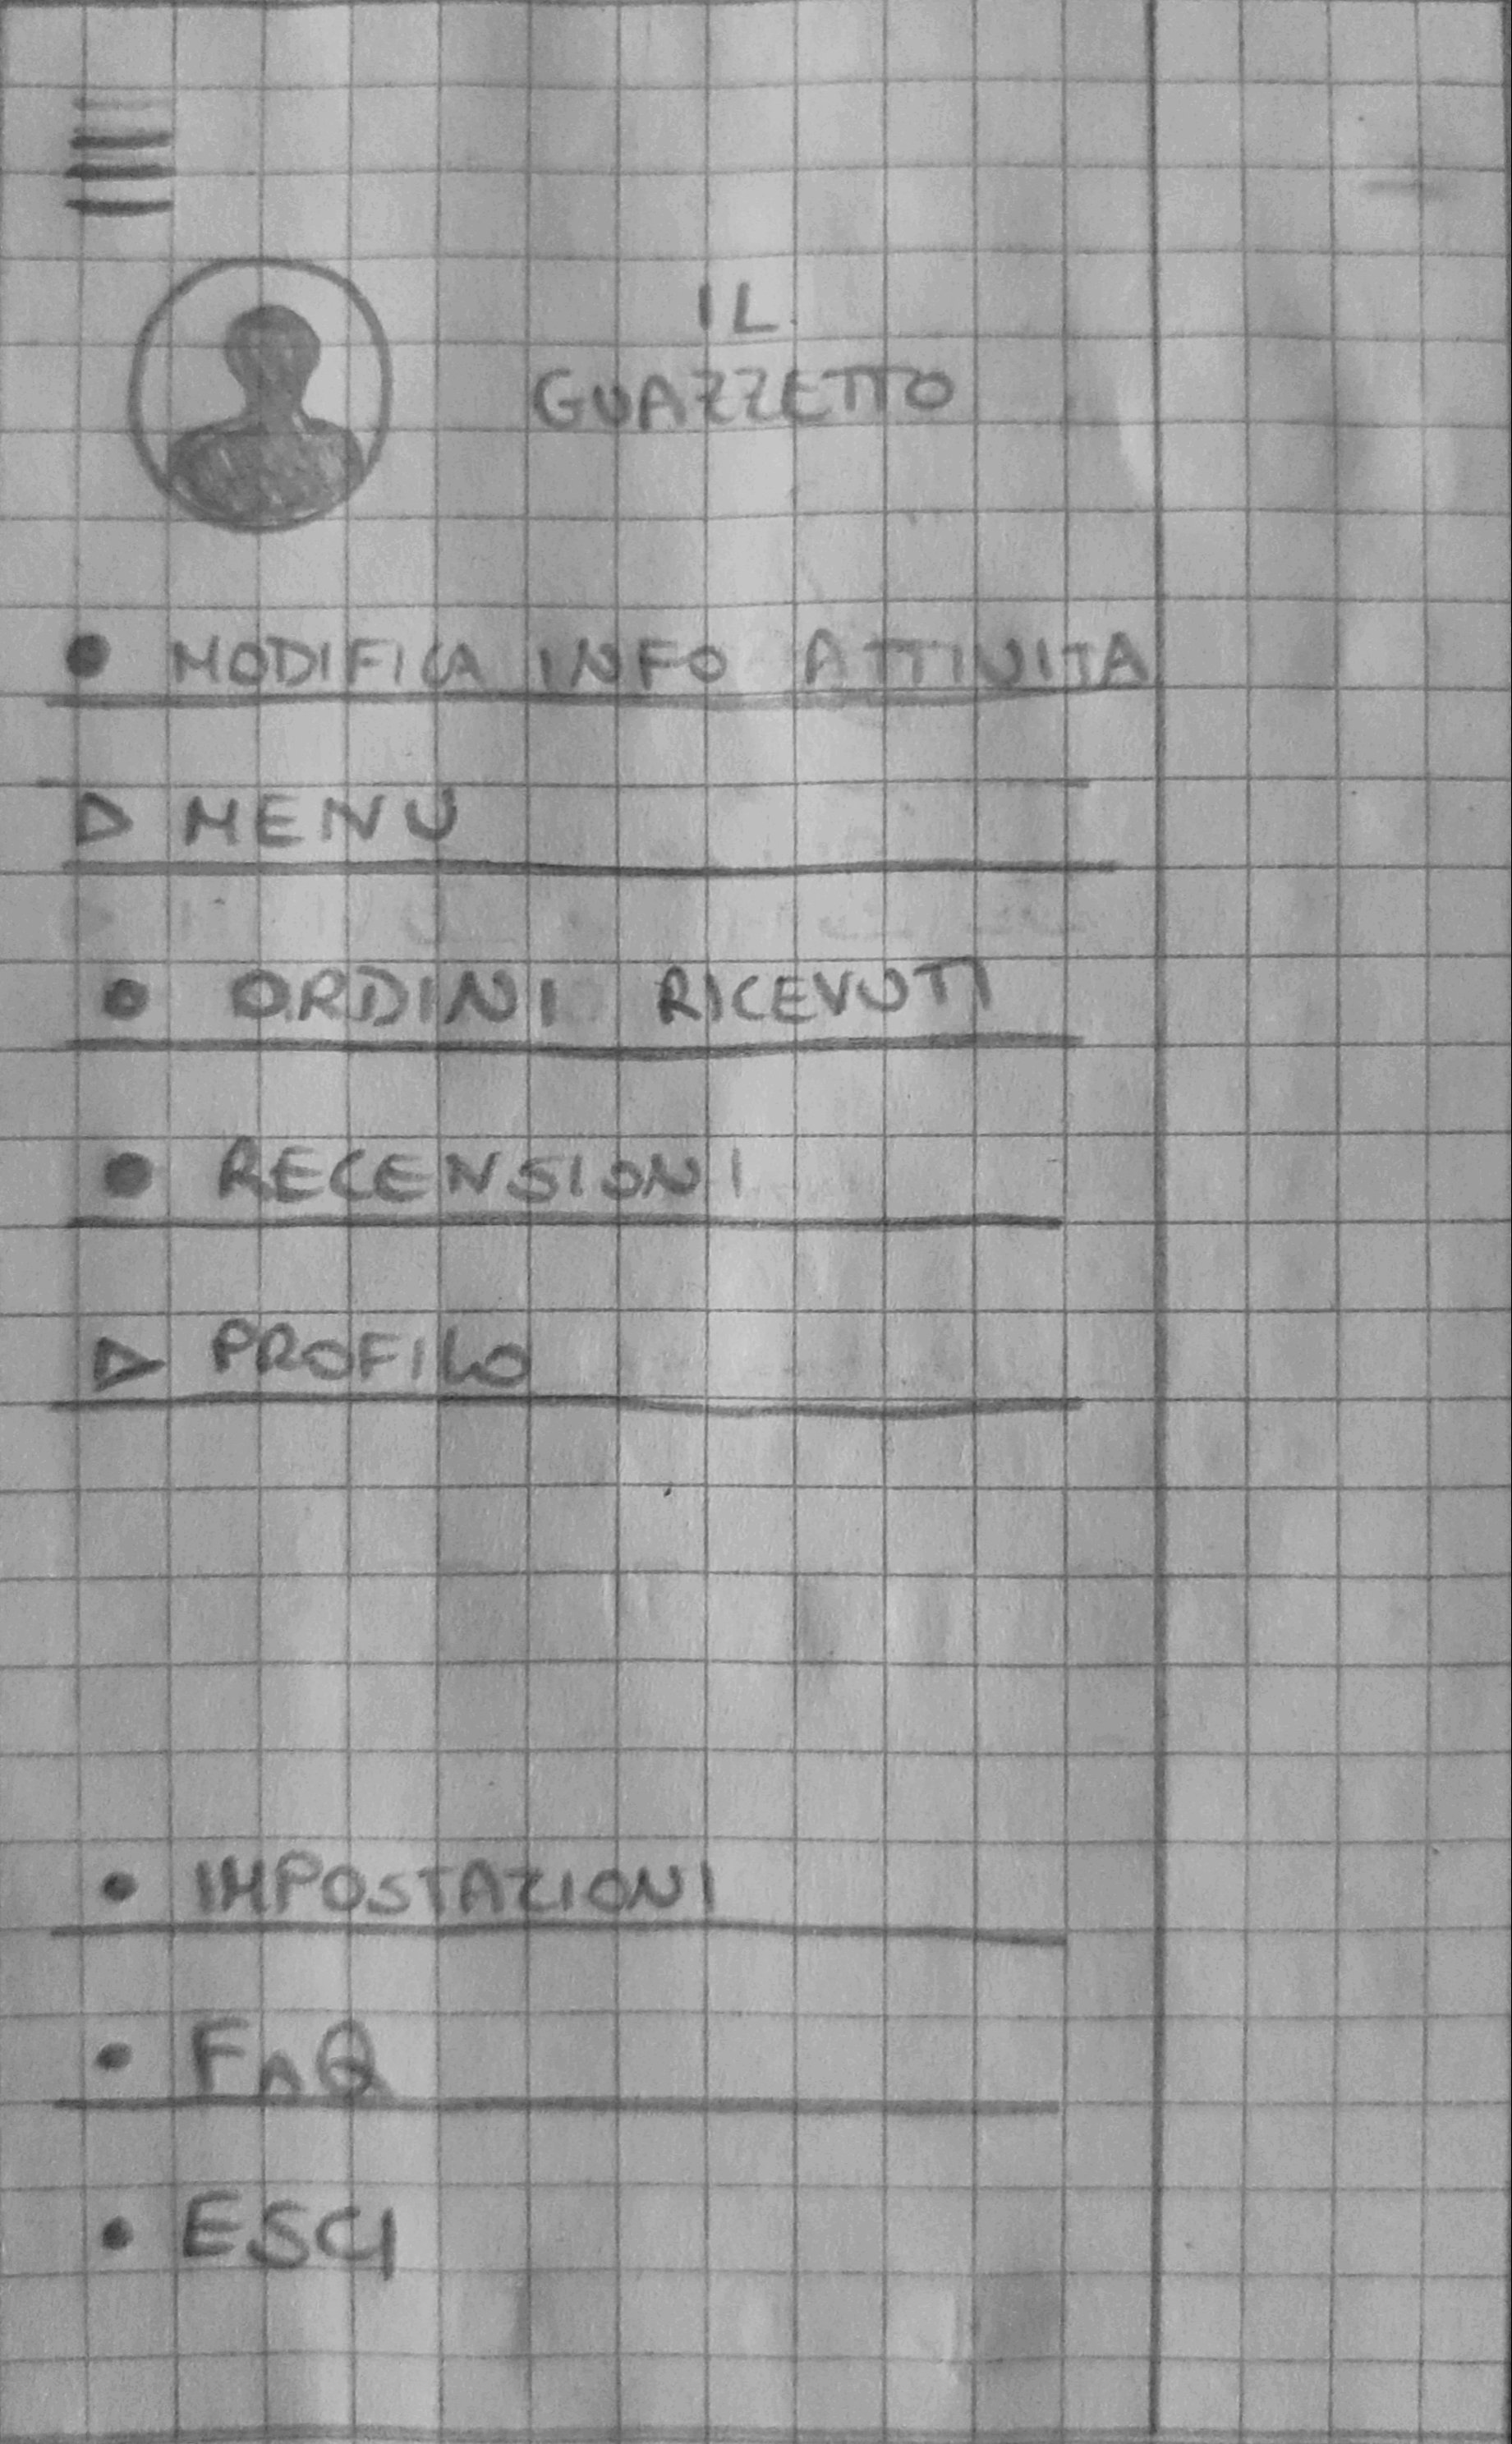 IL
GUAZZETTO
MODIFICA INFO ATTIVITA
MENU
ORDINI RICEVUTI
RECENSIONI
PROFILO
IMPOSTAZIONI
FAQ
ESCI